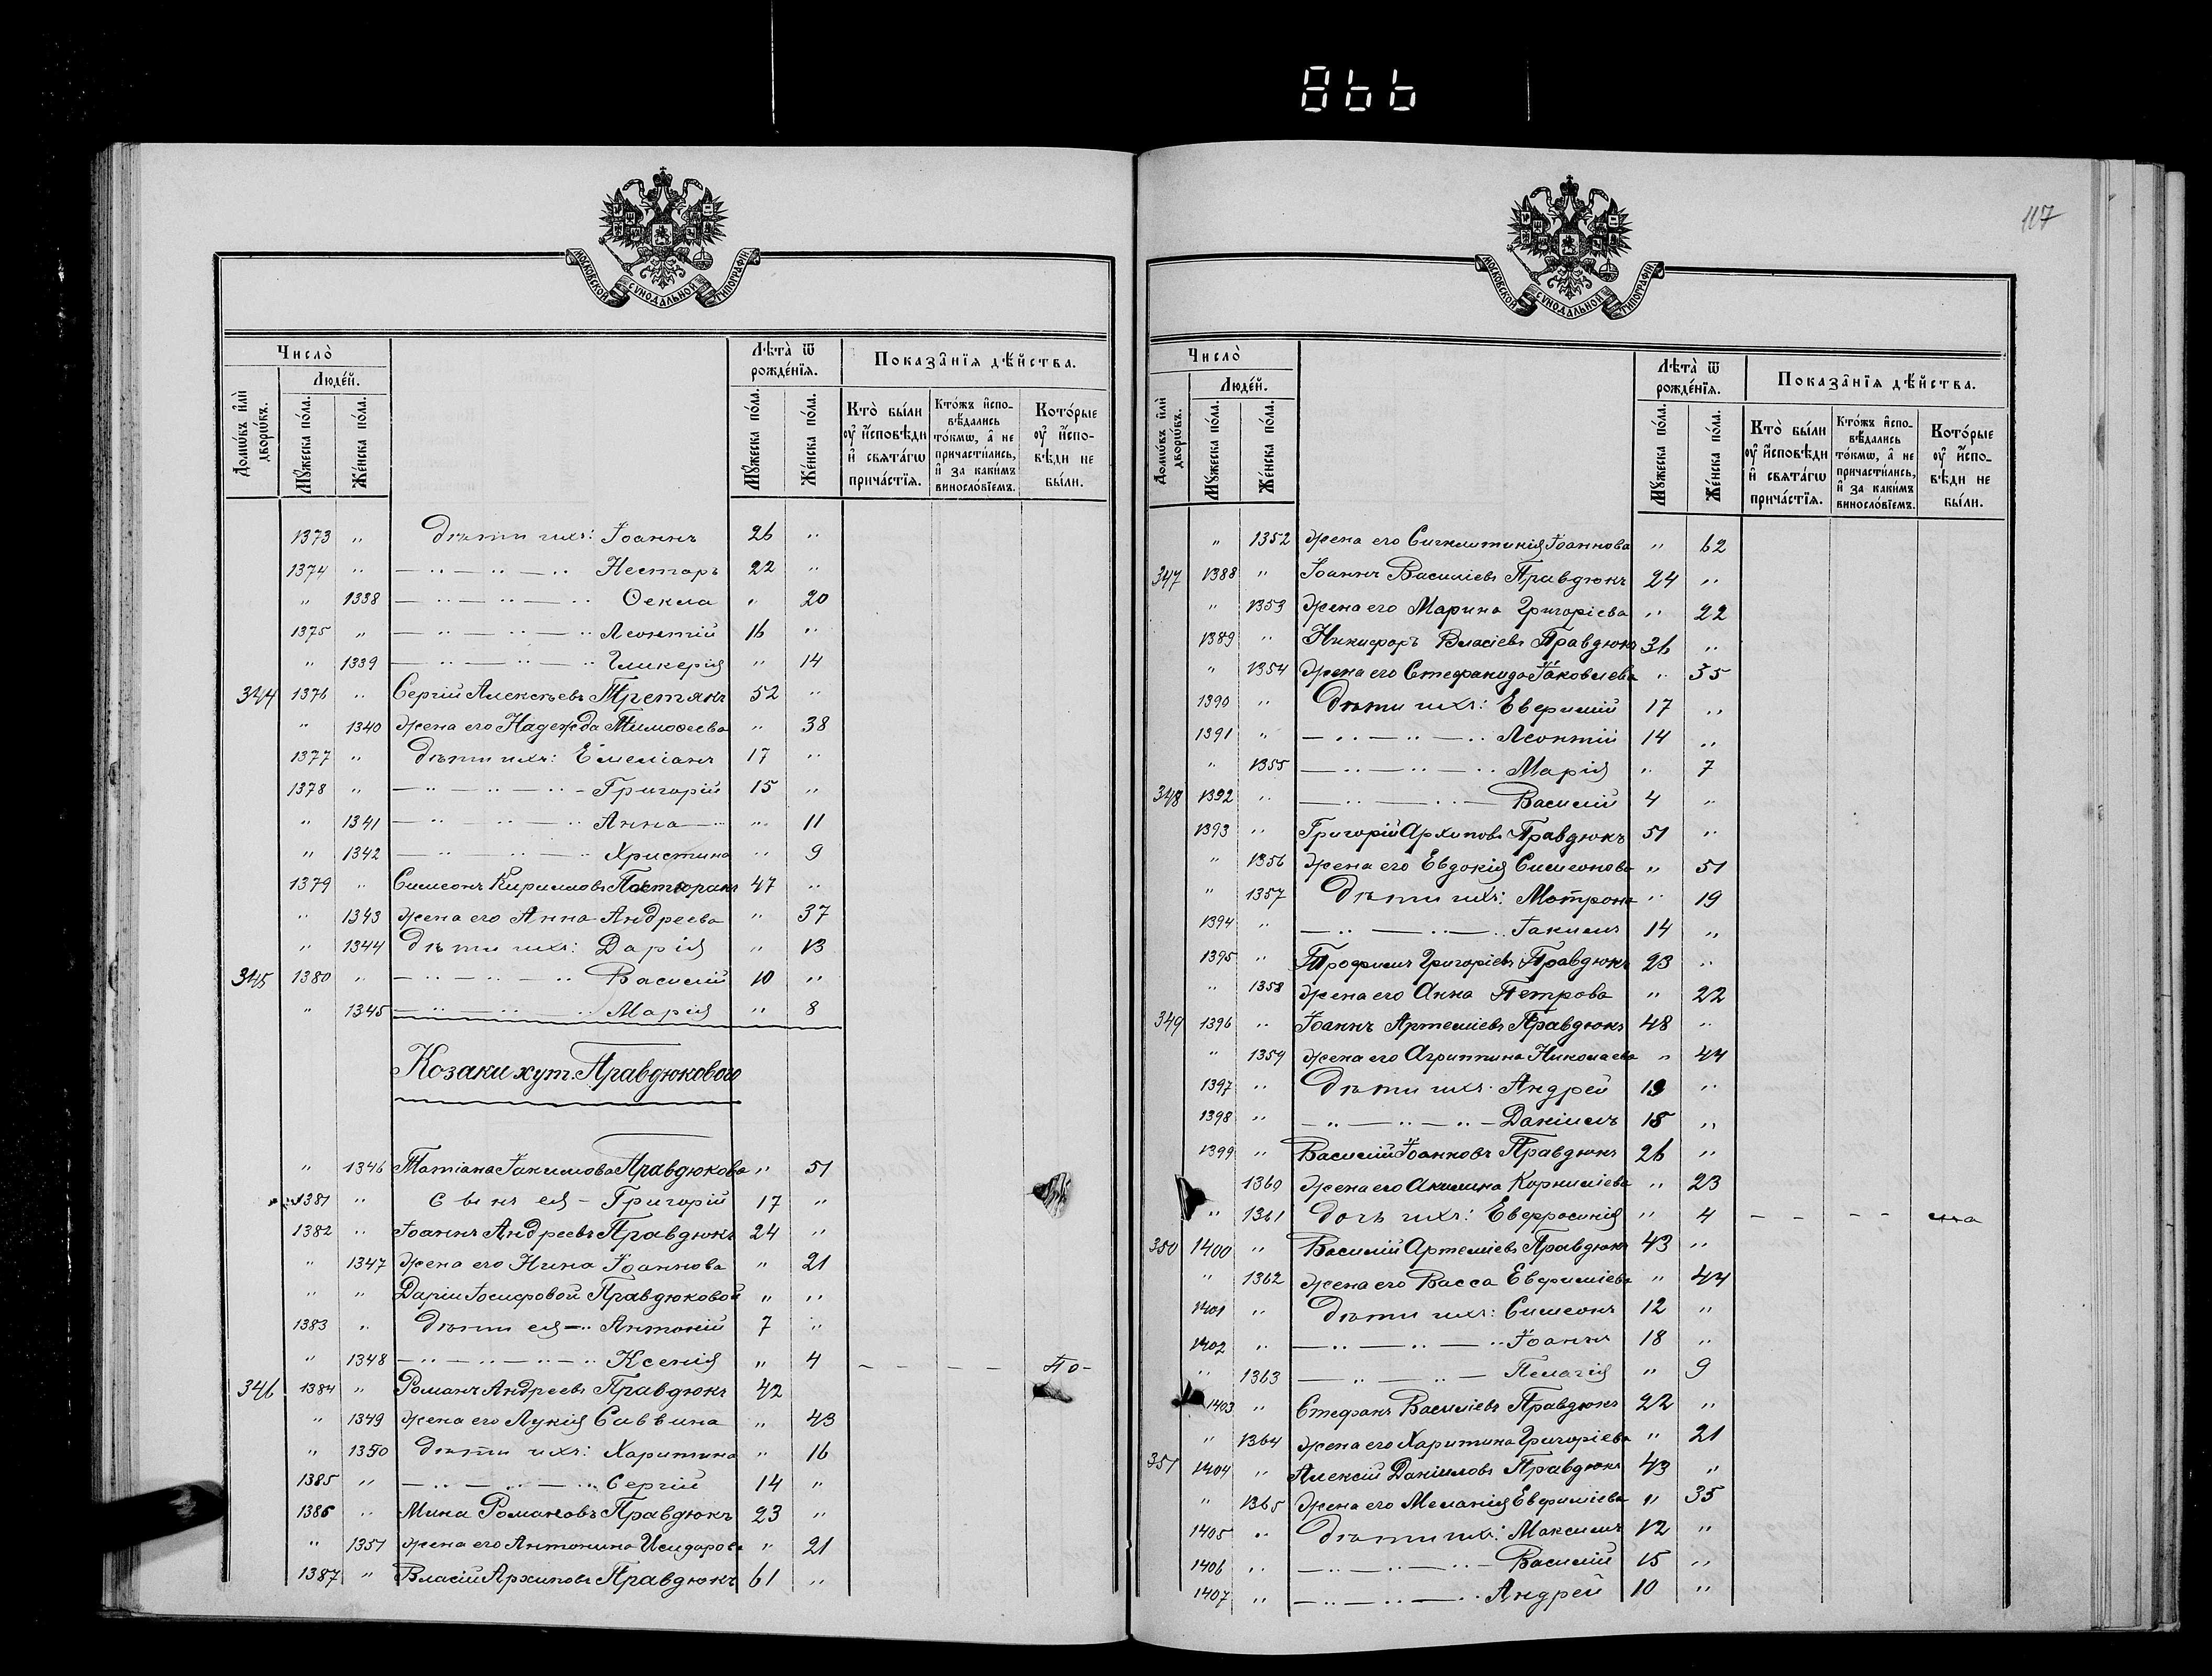 866
МОСКОВСКОЙ СѴНОДАЛЬНОЙ ТИПОГРАФІИ
Число̀
Лѣта̀ ѿ рожде́нїѧ.
Показа̂нїѧ дѣ́йства.
Домѡ́въ и҆лѝ дворѡ́въ.
Люде́й.
Мꙋ́жеска по́ла.
Же́нска по́ла.
Мꙋ́жеска по́ла.
Же́нска по́ла.
Кто̀ бы́ли ᲂу҆ и҆́сповѣди и҆ свѧта́гѡ прича́стїѧ.
Кто́жъ и҆спо-вѣ́дались то́кмѡ, а҆ не причасти́лись, и҆ за каки́мъ винословїемъ.
Кото́рые ᲂу҆ и҆́спо-вѣди не бы́ли.
1373 " Дѣти ихъ: Іоаннъ 26 "
1374 " — " — " — " Несторъ 22 "
" 1338 — " — " — " Ѳекла " 20
1375 " — " — " — " Леонтій 16 "
" 1339 — " — " — " Гликерія " 14
344 1376 " Сергій Алексѣевъ Третякъ 52 "
" 1340 Жена его Надежда Тимоѳеева " 38
1377 " Дѣти ихъ: Емеліанъ 17 "
1378 " — " — " — " — Григорій 15 "
" 1341 — " — " — " Анна — " " 11
" 1342 — " — " — " Христина " 9
1379 " Симеонъ Кирилловъ 47 "
" 1343 Жена его Анна Андреева " 37
" 1344 Дѣти ихъ: Дарія " 13
345 1380 " — " — " — " Василій 10 "
" 1345 — " — " — " Марія " 8
Козаки хут. Правдюкового
" 1346 Татіана Іакимова Правдюкова " 51
1381 " Сынъ ея — Григорій 17 "
1382 " Іоаннъ Андреевъ Правдюкъ 24 "
" 1347 Жена его Нина Іоаннова " 21
" " Даріи Іосифовой Правдюковой " "
1383 " Дѣти ея — " Антоній 7 "
" 1348 — " — " — " — " Ксенія " 4 — — — — По-
346 1384 " Романъ Андреевъ Правдюкъ 42
" 1349 Жена его Лукія Саввина " 43
" 1350 Дѣти ихъ: Харитина " 16
1385 " — " — " — " Сергій 14 "
1386 " Мина Романовъ Правдюкъ 23 "
" 1351 Жена его Антонина Исидорова " 21
1387 " Власій Архиповъ Правдюкъ 61 "
117
МОСКОВСКОЙ СѴНОДАЛЬНОЙ ТИПОГРАФІИ
Число̀
Лѣта̀ ѿ рожде́нїѧ.
Показа̂нїѧ дѣ́йства.
Домѡ́въ и҆лѝ дворѡ́въ.
Люде́й.
Мꙋ́жеска по́ла.
Же́нска по́ла.
Мꙋ́жеска по́ла.
Же́нска по́ла.
Кто̀ бы́ли ᲂу҆ и҆́сповѣди и҆ свѧта́гѡ прича́стїѧ.
Кто́жъ и҆спо-вѣ́дались то́кмѡ, а҆ не причасти́лись, и҆ за каки́мъ винословїемъ.
Кото́рые ᲂу҆ и҆́спо-вѣди не бы́ли.
" 1352 Жена его Сигклитикія Іоаннова " 62
347 1388 " Іоаннъ Василіевъ Правдюкъ 24 "
" 1353 Жена его Марина Григоріева " 22
1389 " Никифоръ Власіевъ Правдюкъ 31 "
" 1354 Жена его Стефанида Іаковлева " 35
1390 " Дѣти ихъ: Евфимій 17 "
1391 " — " — " — " Леонтій 14 "
" 1355 — " — " — " Марія " 7
348 1392 " — " — " — Василій 4 "
1393 " Григорій Архиповъ Правдюкъ 51 "
" 1356 Жена его Евдокія Симеонова " 51
" 1357 Дѣти ихъ: Мотрона " 19
1394 " — " — " — " Іакимъ 14 "
1395 " Трофимъ Григоріевъ Правдюкъ 23 "
" 1358 Жена его Анна Петрова " 22
349 1396 " Іоаннъ Артеміевъ Правдюкъ 48 "
" 1359 Жена его Агриппина Николаева " 44
1397 " Дѣти ихъ: Андрей 19 "
1398 " — " — " — " — Даніилъ 15 "
1399 " Василій Іоанновъ Правдюкъ 26 "
1360 Жена его Акилина Корниліева " 23
" 1361 Дочь ихъ: Евфросинія " 4 — — — —
350 1400 " Василій Артеміевъ Правдюкъ 43 "
" 1362 Жена его Васса Евфиміева " 44
1401 " Дѣти ихъ: Симеонъ 12 "
1402 " — " — " — " Іоаннъ 18 "
" 1363 — " — " — Пелагія " 9
1403 " Стефанъ Василіевъ Правдюкъ 22 "
" 1364 Жена его Харитина Григоріева " 21
351 1404 " Алексій Даніиловъ Правдюкъ 43 "
" 1365 Жена его Меланія Евфиміева " 35
1405 " Дѣти ихъ: Максимъ 12 "
1406 " — " — " — Василій 15 "
1407 " — " — " — " Андрей 10 "